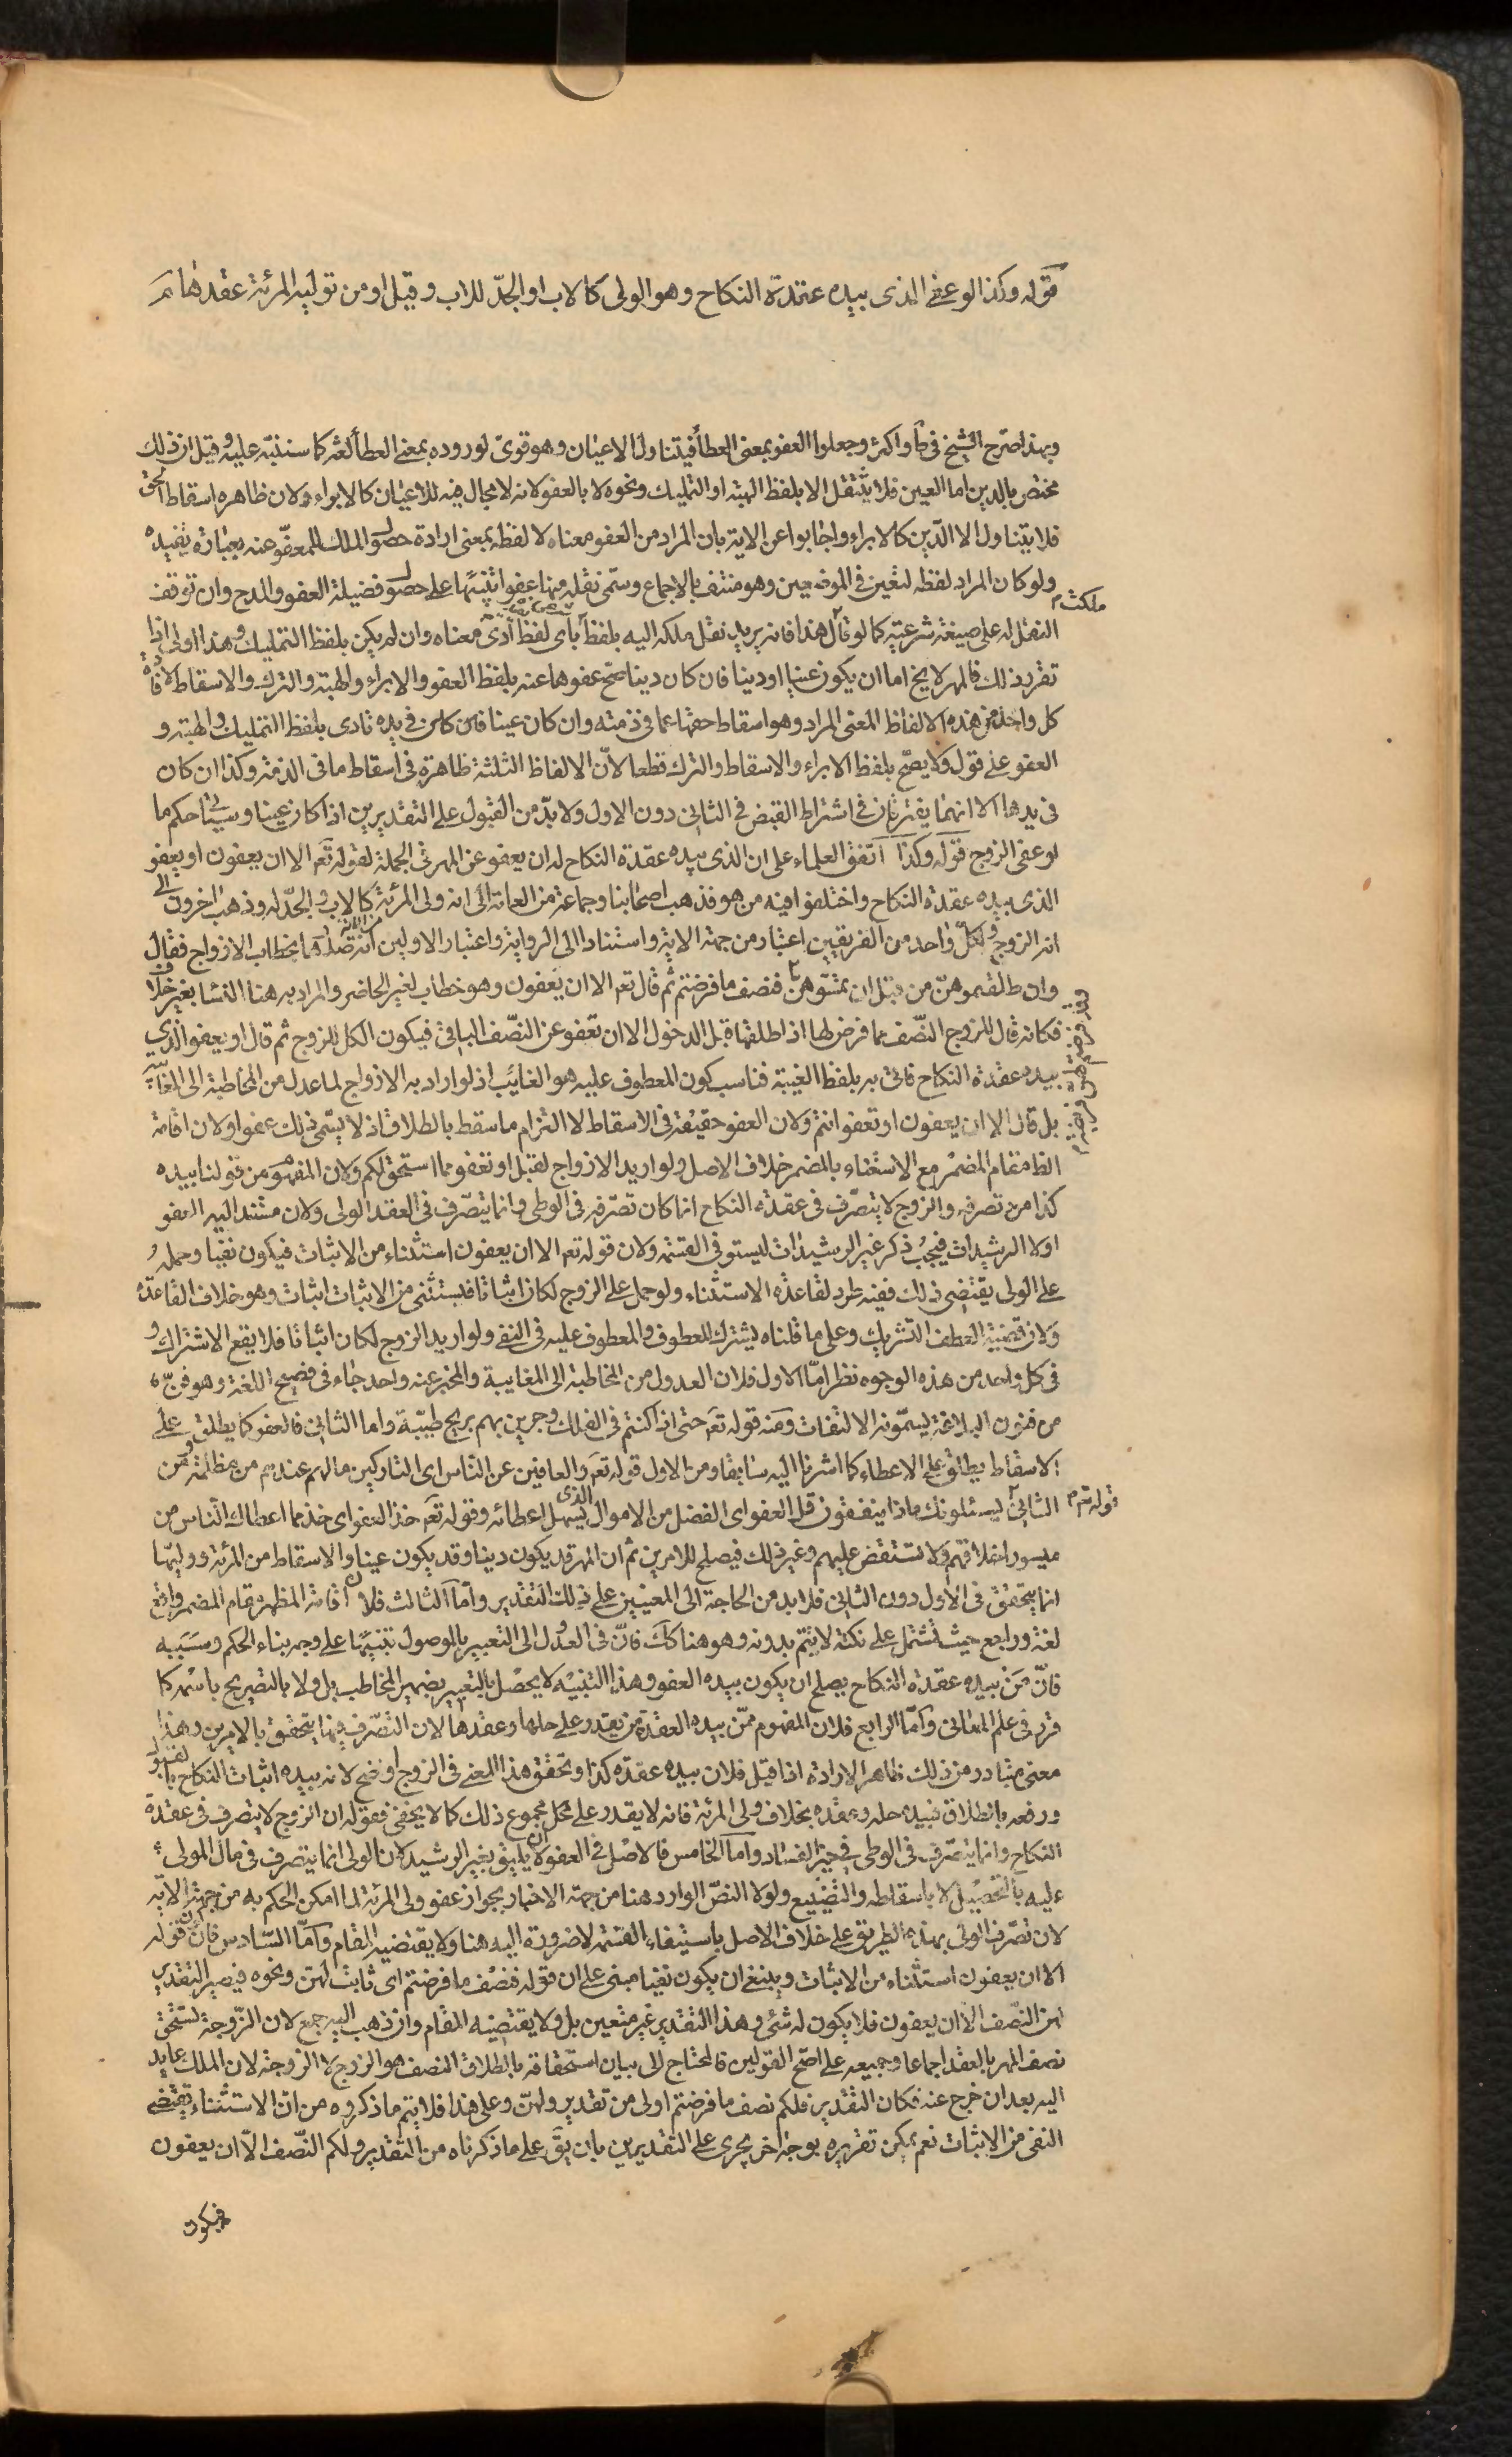 قوله وكذا لو عفى الذى بيده عقدة النكاح وهو الولى كالاب او الجدّ للاب وقيل او من توليه المرئة عقدها مَ
وبهذا صرح الشيخ فى ط واكثر وجعلوا العفو بمعنى العطأ فيتناول الاعيان وهو قوىّ لوروده بمعنى العطأ لغة كما سننبّه عليه وقيل ان ذلك
مختص بالدين اما العين فلا ينتقل الا بلفظ الهبة او التمليك ونحوه لا بالعفو لانه لا مجال فيه للاعيان كالابراء ولان ظاهره اسقاط الحق
فلا يتناول الا الدّين كالابراء واجابوا عن الاية بان المراد من العفو معناه لا لفظه بمعنى ارادة حصول الملك للمعفوّ عنه بعبارة يفيده
ولو كان المراد لفظه لتعين فى الموضعين وهو منتف بالاجماع وسمّى نقله منها عفوا تنبيهًا على حصول فضيلة العفو والمدح وان توقف
النقل له على صيغة شرعية كما لو قال هذا فانه يريد نقل ملكه اليه بلفظ باى لفظ أدىّ معناه وان لم يكن بلفظ التمليك وهذا اولى اذا
ملكت م
تقرر ذلك فالمهر لا يخ اما ان يكون عينا او دينا فان كان دينا صحّ عفوها عنه بلفظ العفو والابراء والهبة والترك والاسقاط لافادة
كل واحد من هذه الالفاظ المعنى المراد وهو اسقاط حقها عما فى ذمته وان كان عينا فان كان فى يده تادى بلفظ التمليك والهبة و
العفو على قول ولا يصحّ بلفظ الابراء والاسقاط والترك قطعا لانّ الالفاظ الثلثة ظاهرة فى اسقاط ما فى الذمة وكذا ان كان
فى يدها الا انهما يفترقان فى اشتراط القبض فى الثانى دون الاول ولا بدّ من القبول على التقديرين اذا كان عينا وسيأتى حكم ما
لو عفى الزوج قوله وكذا اتفق العلماء على ان الذى بيده عقدة النكاح له ان يعفو عن المهر فى الجملة لقوله تعَ الا ان يعفون او يعفو
الذى بيده عقدة النكاح واختلفوا فيه من هو فذهب اصحابنا وجماعة من العامة الى انه ولى المرئة كالاب والجدّ له وذهب اخرون الى
انه الزوج ولكلّ واحد من الفريقين اعتبار من جهة الاية واستنادا الى الرواية واعتبار الاولين من الاية انه صدّرها بخطاب الازواج فقال
وان طلقتموهنّ من قبل ان تمسّوهنّ فنصف ما فرضتم ثم قال تعَ الا ان يَعفون وهو خطاب لغير الحاضر والمراد به هنا النسا بغير خلاف
وقد فرضتم لهن فريضة م
فكانه قال للزوج النّصف مما فرض لها اذا طلقها قبل الدخول الا ان تعفو عن النّصف الباقى فيكون الكل للزوج ثم قال او يعفو الذى
بيده عقدة النكاح فاتى به بلفظ الغيبة فناسب كون المعطوف عليه هو الغائب اذ لو اراد به الازواج لما عدل من المخاطبة الى المغايبة
بل قال الا ان يعفون او تعفو انتم ولان العفو حقيقة فى الاسقاط لا التزام ما سقط بالطلاق اذ لا يسّمى ذلك عفوا ولان اقامة
الظاهر مقام المضمر مع الاستغناء بالمضمر خلاف الاصل ولو اريد الازواج لقيل او تعفو مما استحق لكم ولان المفهوم من قولنا بيده
كذا من تصرفه والزوج لا يتصّرف فى عقدة النكاح انما كان تصّرفه فى الوطى وانما يتصّرف فى العقد الولى ولان مستند اليه العفو
اولا الرشيدات فيجبُ ذكر غير الرشيدات ليستوفى القسمة ولان قوله تعَ الا ان يعفون استثناء من الاثبات فيكون نفيا وحمله
على الولى يقتضى ذلك ففيه طرد لقاعدة الاستثناء ولو حمل على الزوج لكان اثباتا فيستثنى من الاثبات اثبات وهو خلاف القاعدة
ولان قضية العطف التشريك وعلى ما قلناه يشترك المعطوف والمعطوف عليه فى النفى ولو اريد الزوج لكان اثباتا فلا يقع الاشتراك و
فى كل واحد من هذه الوجوه نظر امّا الاول فلان العدول من المخاطبة الى المغايبة والمخبر عنه واحد جاء فى فصيح اللغة وهو فنّ
من فنون البلاغة يسمّونه الالتفات ومنه قوله تعَ حتى اذا كنتم فى الفلك وجرين بهم بريح طيبّة واما الثانى فالعفو كما يطلق على
الاسقاط يطلق على الاعطاء كما اشرنا اليه سابقا ومن الاول قوله تعَ والعافين عن النّاس اى التاركين ما لهم عندهم من مظلمة ومن
الثانى يسئلونك ماذا ينفقون قل العفو اى الفضل من الاموال الذى يسهل اعطائه وقوله تعَ خذ العفو اى خذ ما اعطاك النّاس من
قوله تعَ م
ميسور اخلاقهم ولا تستقض عليهم وغير ذلك فيصلح للامرين ثم ان المهر قد يكون دينا وقد يكون عينا والاسقاط من المرئة ووليّها
انما يتحقق فى الاول دون الثانى فلا بد من الحاجة الى المعنيين على ذلك التقدير وامّا الثالث فلان اقامة المظهر مقام المضمر واقع
لغة وراجع حيث تشتمل على نكتة لا يتم بدونه وهو هنا كك فانّ فى العدول الى التعبير بالموصول تنبيهًا على وجه بناء الحكم وسَبَبه
فانّ مَنْ بيده عقدة النكاح يصلح ان يكون بيده العفو وهذا التنبيه لا يحصل بالتعبير بضمير المخاطب بل ولا بالتصريح باسمه كما
قرر فى علم المعانى وامّا الرابع فلان المفهوم ممّن بيده العقدة من يقدر على حلها وعقدها لان التصّرف فيها يتحقق بالامرين وهذا
معنى متبادر من ذلك ظاهر الارادة اذا قيل فلان بيده عقدة كذا وتحقق هذا المعنى فى الزوج اوضح لانه بيده اثبات النكاح بالقبول
ورفعه بالطلاق فبيده حله وعقده بخلاف ولى المرئة فانه لا يقدر على كل مجموع ذلك كما لا يخفى فقوله ان الزوج لا يتصرف فى عقدة
النكاح وانما يتصّرف فى الوطى فى حيز الفساد وامّا الخامس فالاصل فى العفو ان لا يليق بغير الرشيد لان الولى انما يتصرف فى مال المولى
عليه بالتحصيل لا باسقاطه والتضييع ولولا النصّ الوارد هنا من جهة الاخبار بجواز عفو ولى المرئة لما امكن الحكم به من جهة الاية
لان تصّرف الولى بهذه الطريق على خلاف الاصل باستيفاء القسمة لا ضرورة اليه هنا ولا يقتضيه المقام وامّا السّادس فان قوله
الا ان يعفون استثناء من الاثبات وينبغى ان يكون نفيا مبنى على ان قوله فنصْف ما فرضتم اى ثابت لهنّ ونحوه فيصير التقدير
لهن النصّف الا ان يعفون فلا يكون له شئ وهذا التقدير غير متعين بل ولا يقتضيه المقام وان ذهب اليه جمع لان الزّوجة تستحق
نصف المهر بالعقد اجماعا وجميعه على اصّح القولين فالمحتاج الى بيان استحقاقه بالطلاق النصف هو الزوج لا الزوجة لان الملك عايد
اليه بعد ان خرج عنه فكان التقدير فلكم نصف ما فرضتم اولى من تقدير ولهنّ وعلى هذا فلا يتم ما ذكروه من انّ الاستثناء يقتضى
النفى من الاثبات نعم يمكن تقريره بوجه اخر يجرى على التقديرين بان يقَ على ما ذكرناه من التقدير ولكم النّصف الّا ان يعفون
فيكون